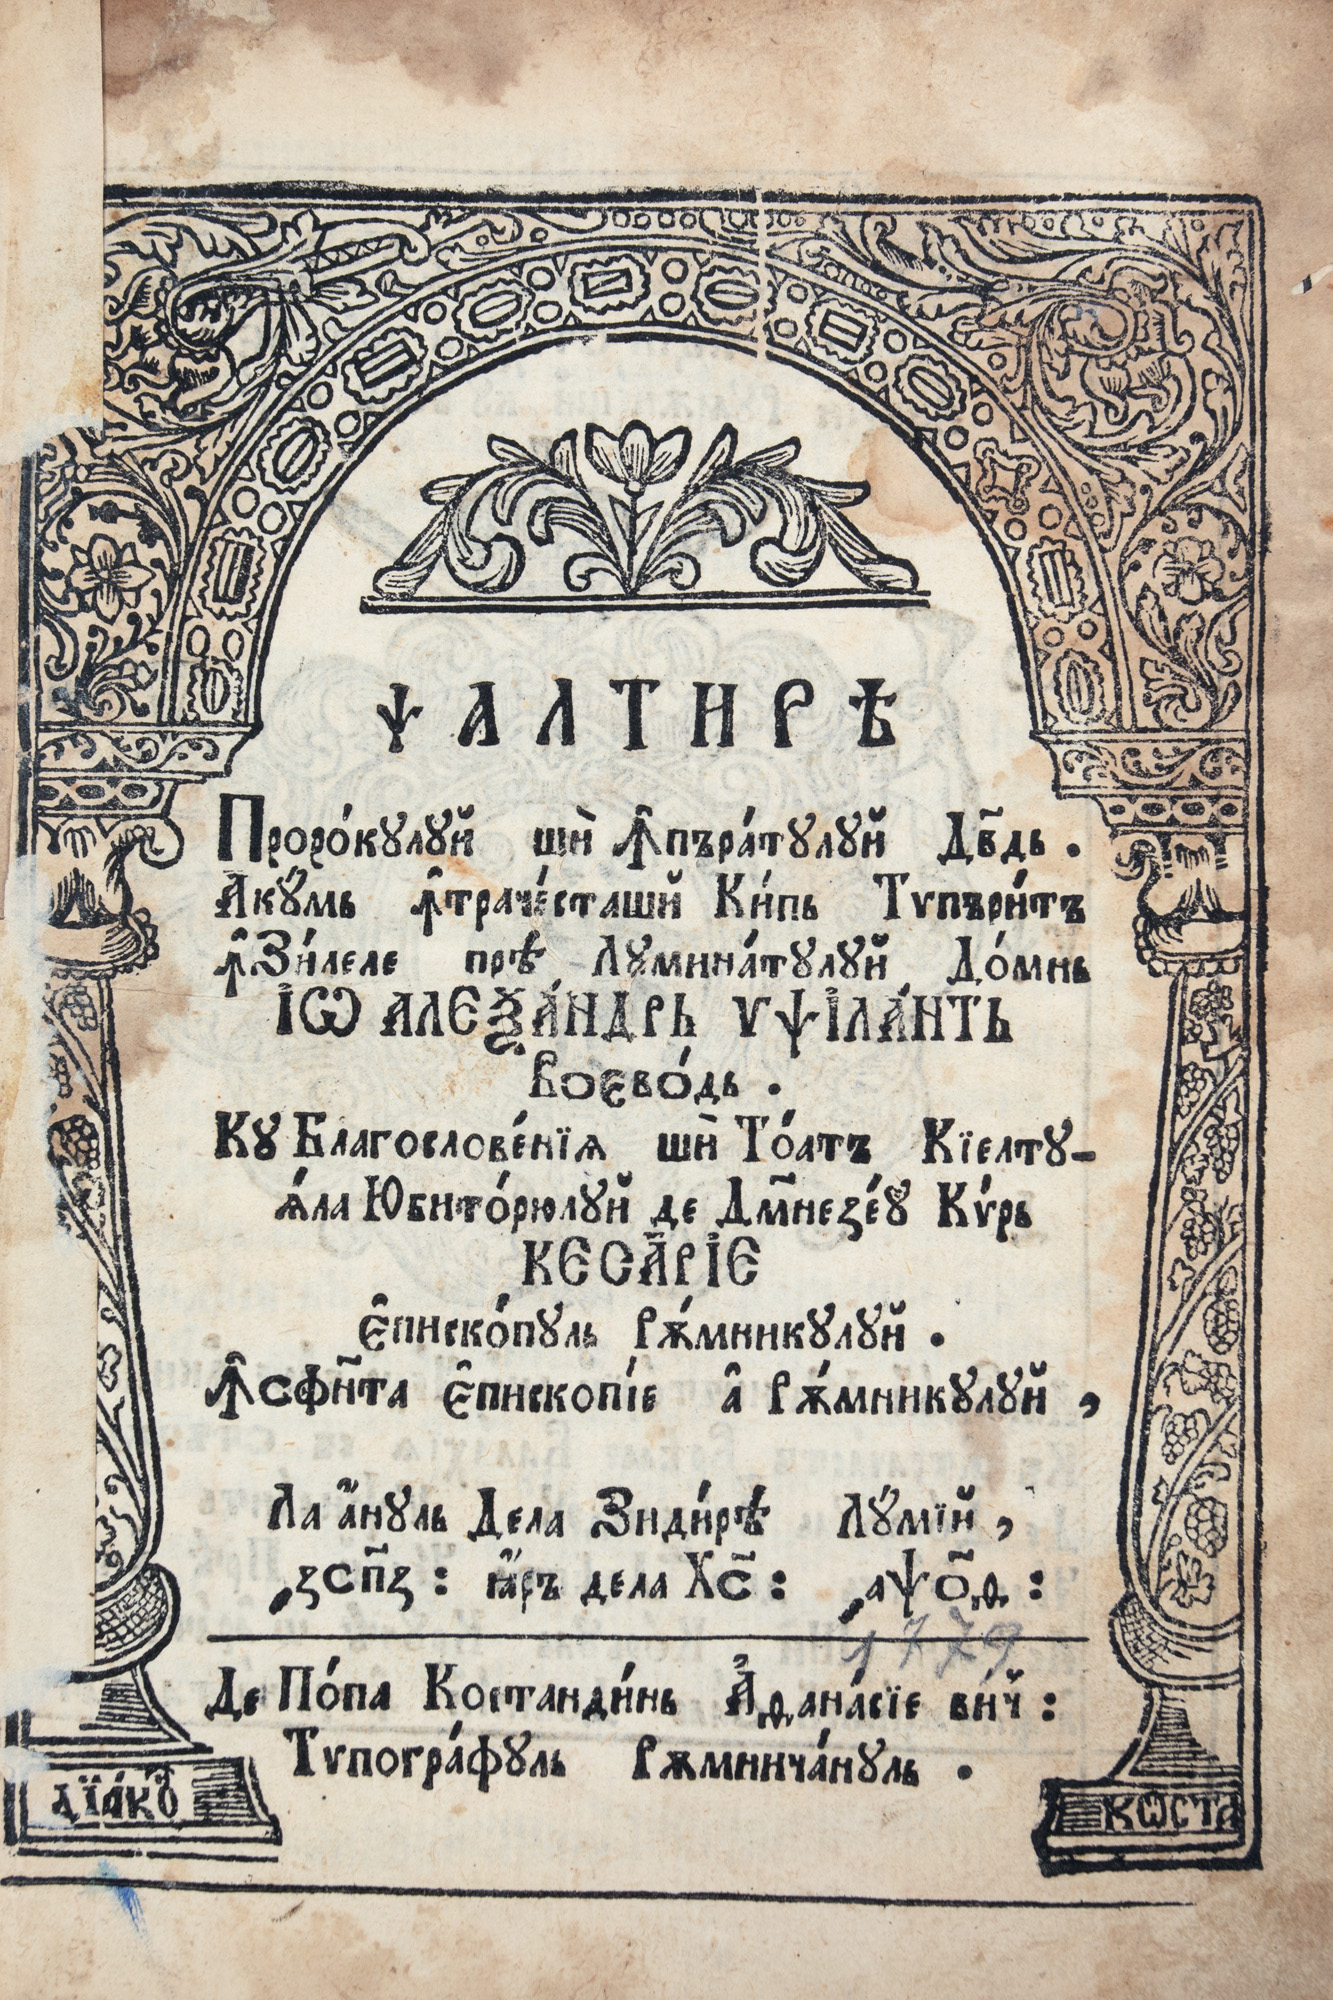 ѰАЛТИРѢ
Проро́кулуй шѝ Ꙟпъра́тулуй Дв҃дь .
Аку́мь ꙟтраче́сташй Ки́пь Тѵпъри́тъ
ꙟЗи́леле прѣ Луминатулуй До́мнь
ІѠ АЛЕѮА́НДРЬ ѴѰІЛА́НТЬ
Воево́дь .
Ку Благослове́нїѧ шѝ То́атъ Кїелту-
ѧ́ла Юбито́рюлуй де Дм҃незе́ꙋ Кѵ́рь
КЕСА́РІЕ
Епⷭ҇ископуль Рѫ́мникулуй .
Ꙟсфи҃та Епископі́е а Рѫ́мникулуй ,
Ла а҆́нуль Дела Зиди́рѣ Лу́мїй ,
҂зсп҃з : ꙗ҆ръ дела Хс҃ : ҂аѱо҃ѳ :
1779
Де По́па Костанди́нь Аѳана́сїе ви́ч :
Тѵпогра́фуль Рѫмнича́нуль .
дїа́кѡ
кѡста